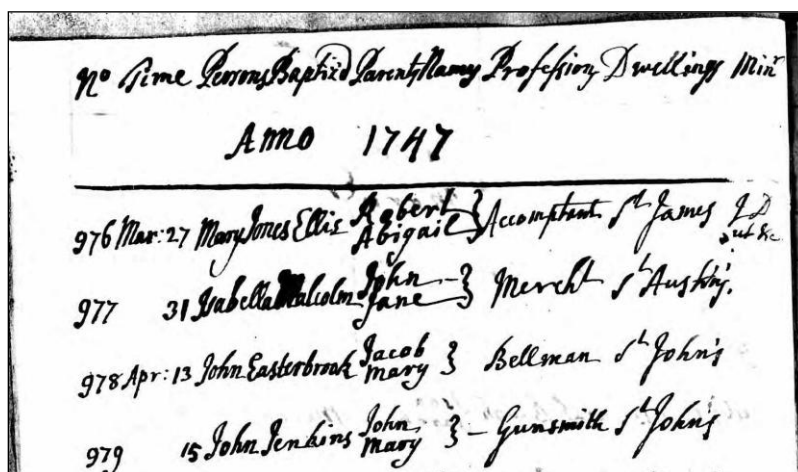 No Time Persons Baptiz'd Parents Names Profession Dwellings Minr
Anno 1747
976 Mar: 27 Mary Jones Ellis Robert Abigail } Accomptant St James J D ut sc
977 31 Isabella Malcolm John Jane } Mercht St Austin's
978 Apr: 13 John Easterbrook Jacob Mary } Bellman St John's
979 15 John Jenkins John Mary } - Gunsmith St John's